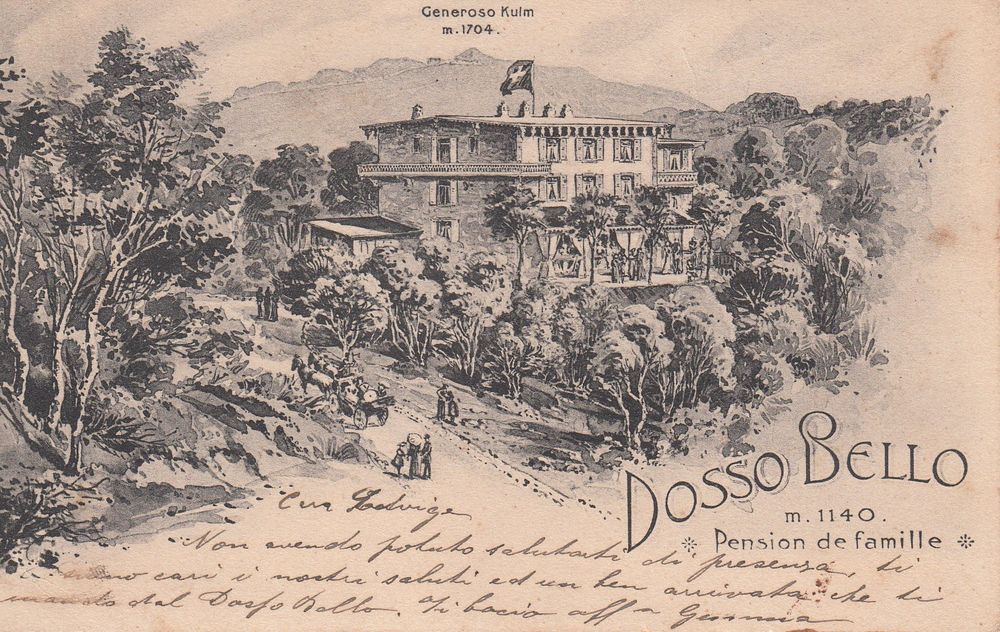 Generoso Kulm
m. 1704.
DOSSO BELLO
m. 1140.
* Pension de famille *
Cara Edvige
Non avendo potuto salutarti di presenza, ti
cari i nostri saluti ed un ben arrivata che ti
mando dal Dosso Bello. Ti bacio aff.a Gemma